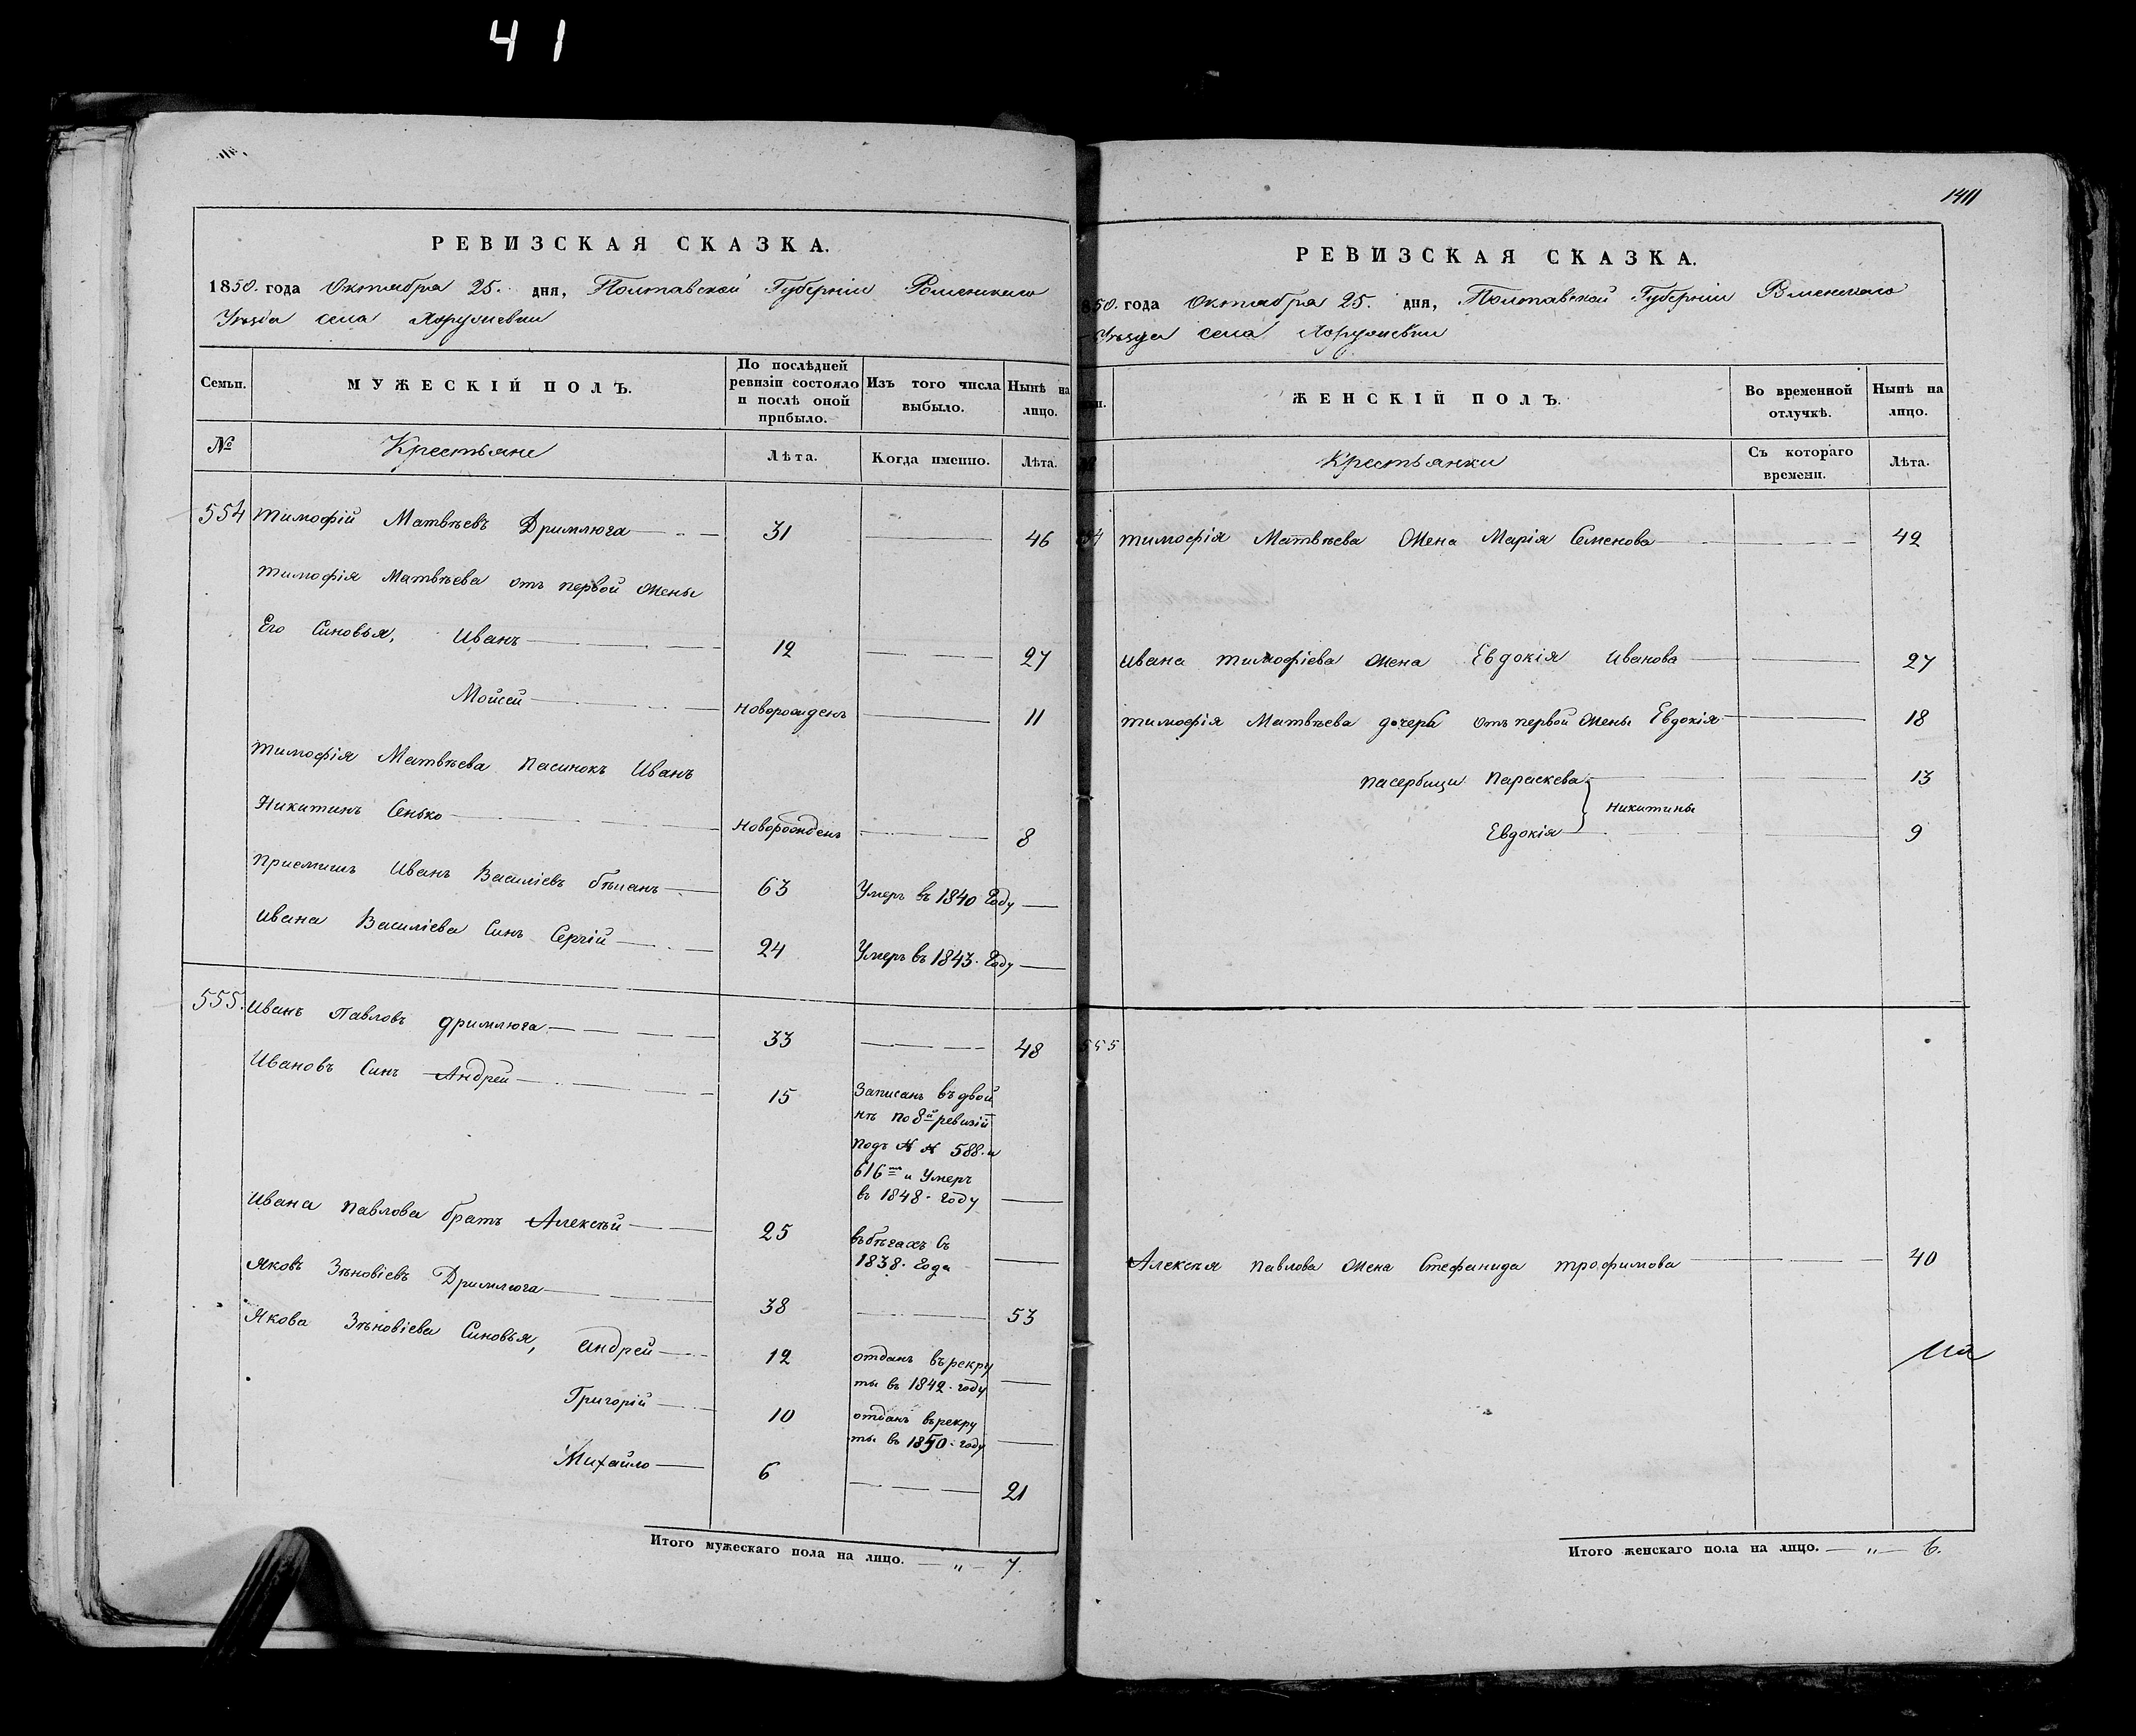 41
РЕВИЗСКАЯ СКАЗКА.
1850. года Октября 25. дня, Полтавской Губерніи Роменскаго
Уѣзда села Хоружевки
Семьи.
МУЖЕСКІЙ ПОЛЪ.
По послѣдней ревизіи состояло и послѣ оной прибыло.
Изъ того числа выбыло.
Нынѣ на лицо.
№
Крестьяне
Лѣта.
Когда именно.
Лѣта.
554 Тимофій Матвѣевъ Дримлюга 31 46
Тимофія Матвѣева отъ первой жены
Его Синовья, Иванъ 12 27
Мойсей Новорожденъ 11
Тимофія Матвѣева Пасинокъ Иванъ
Никитинъ Сенько Новорожденъ 8
Приемишъ Иванъ Василіевъ 63 Умеръ въ 1840 Году
Ивана Василіева Синъ Сергій 24 Умеръ въ 1843. Году
555. Иванъ Павловъ Дримлюга 33 48
Ивановъ Синъ Андрей 15 Записанъ въ двой
нѣ по 8й ревизій
подъ № № 588. и
616м и Умеръ
въ 1848. году
Ивана Павлова братъ Алексѣй 25 въ бѣгахъ Съ
1838. Года
Яковъ Зѣновіевъ Дримлюга 38 53
Якова Зѣновіева Синовья, Андрей 12 отданъ въ рекру
ты въ 1842. году
Григорій 10 отданъ въ рекру
ты въ 1850. году
Михайло 6 21
Итого мужескаго пола на лицо. — „ — 7.
1411
РЕВИЗСКАЯ СКАЗКА.
850. года Октября 25. дня, Полтавской Губерніи Роменскаго
Уѣзда села Хоружевки
ЖЕНСКІЙ ПОЛЪ.
Во временной отлучкѣ.
Нынѣ на лицо.
Крестьянки
Съ котораго времени.
Лѣта.
Тимофія Матвѣева Жена Марія Семенова 42
Ивана Тимофіева Жена Евдокія Иванова 27
Тимофія Матвѣева дочерь отъ первой Жены Евдокія 18
Пасербици Параскева 13
Никитины
Евдокія 9
555
Алексѣя Павлова Жена Стефанида Трофимова 40
Итого женскаго пола на лицо. — „ — 6.